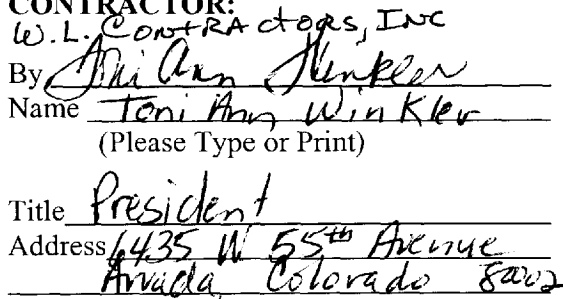 CONTRACTOR:
W.L. CONTRActors, INC
By Toni Ann Winkler
Name Toni Ann Winkler
(Please Type or Print)
Title President
Address 6435 W 55th Avenue
Arvada, Colorado 80002